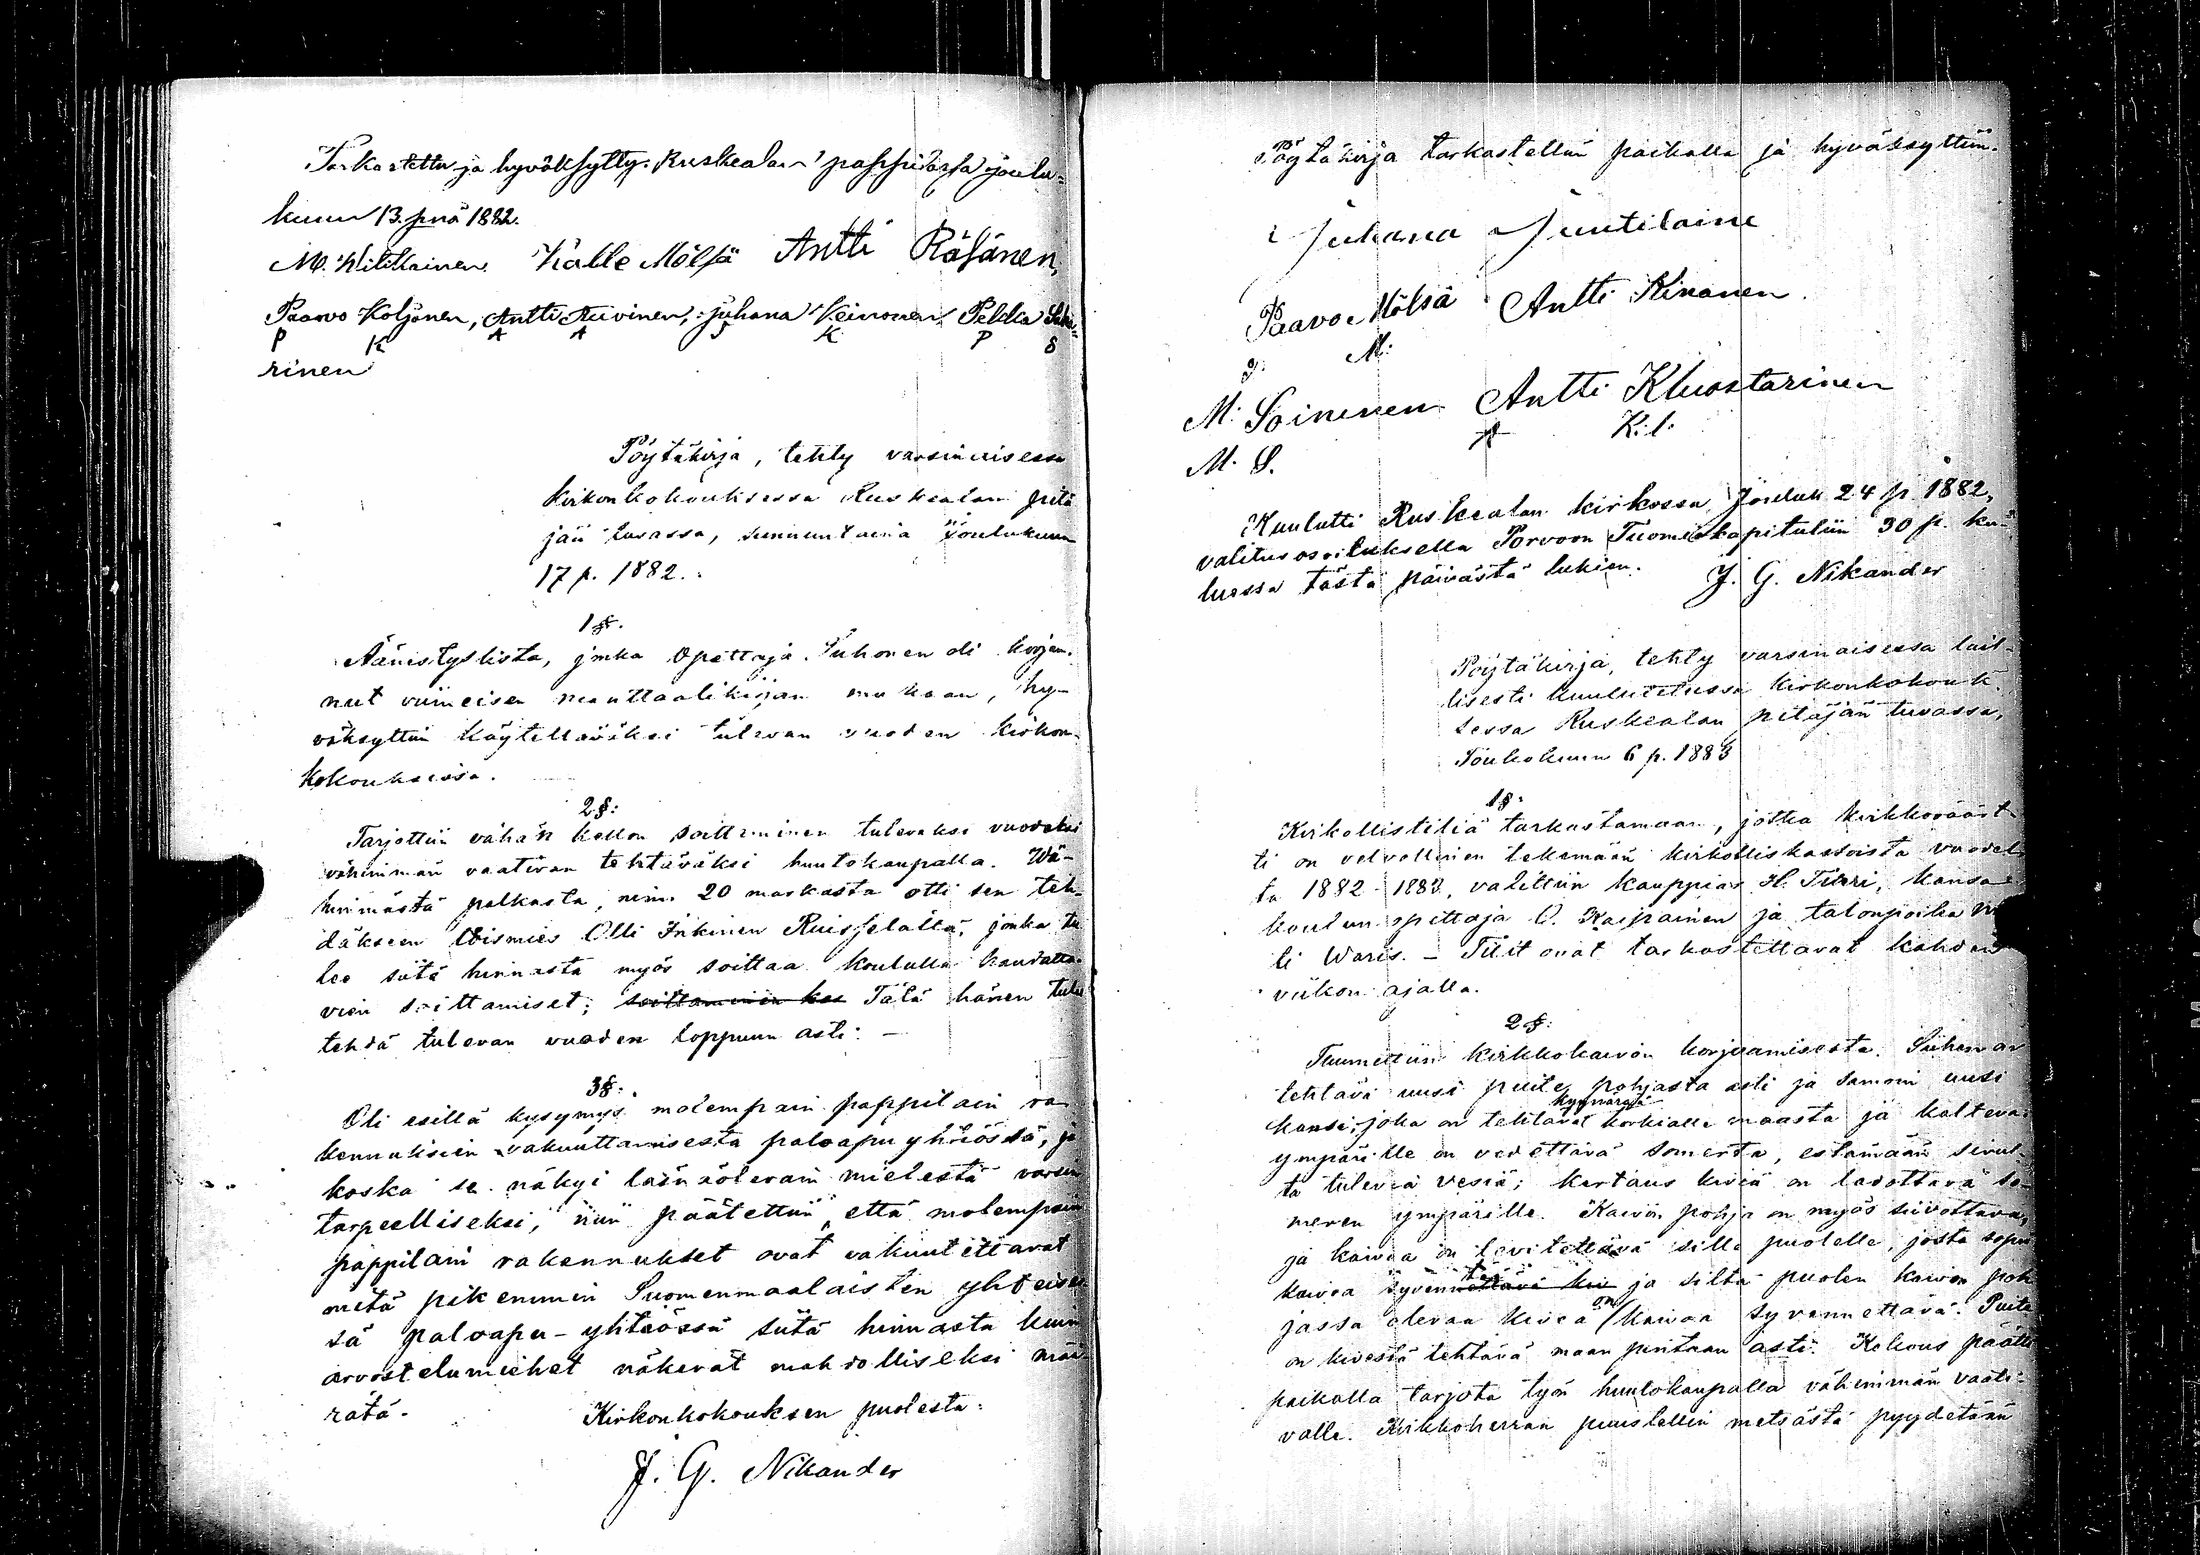 Tarkastettu ja hyväksytty Ruskealan pappilassa joulu-
kuun 13. pnä 1882.
M. Wilikainen Kalle Mölsä Antti Räsänen,
Paavo Koljonen, Antti Auvinen, Juhana Keinonen Pekka
P K A A J K P S
rinen
Pöytäkirja, tehty varsinaisessa
kirkonkokouksessa Ruskealan pitä
jän tuvassa, sunnuntaina Joulukuun
17 p. 1882.
1 §.
Äänistyslista, jonka Opettaja Suhonen oli korjan-
nut viimeisen manttaalikirjan mukaan, hy-
väksyttiin käytettäväksi tulevan vuoden kirkon-
kokouksissa.
2 §:
Tarjottiin vähän kellon soittaminen tulevaksi vuodeksi
vähimmän vaativan tehtäväksi huutokaupalla. Wä-
himmästä palkasta, nim. 20 markasta otti sen teh-
däkseen loismies Olli Inkinen Ruisselältä, jonka tu
lee siitä hinnasta myös soittaa koululla haudatta-
vien soittamiset; soittaminen kes Tätä hänen tulee
tehdä tulevan vuoden loppuun asti. —
3 §:
Oli esillä kysymys molempain pappilain ra
kennuksien vakuuttamisesta paloapu yhtiössä, ja
koska se näkyi läsnäolevain mielestä varsin
tarpeelliseksi, niin päätettiin, että molempain
pappilain rakennukset ovat vakuutettavat
mitä pikemmin Suomenmaalaisten yhteises
sä paloapu-yhtiössä siitä hinnasta kuin
arvostelumiehet näkevät mahdolliseksi mää-
rätä.
Kirkonkokouksen puolesta:
J. G. Nikander
Pöytäkirja tarkastettiin paikalla ja hyväksyttiin.
Juhana Juutilaine
Paavo Mölsä Antti Kinanen
M.
M. Soininen Antti Kluostarinen
A K. l.
M. S.
Kuulutti Ruskealan kirkossa Jouluk 24 p 1882,
valitusosoituksella Porvoon Tuomiokapituliin 30 p. ku-
luessa tästä päivästä lukien. J. G. Nikander
Pöytäkirja, tehty varsinaisessa lail-
lisesti kuulutetussa kirkonkokouk-
sessa Ruskealan pitäjän tuvassa,
Toukokuun 6 p. 1883
1 §:
Kirkollistiliä tarkastamaan, jotka kirkkoväärt-
ti on velvollinen tekemään kirkolliskassoista vuodel-
ta 1882-1883, valittiin kauppias H. Tikri, kansa-
koulun opettaja O. Kaipainen ja talonpoika
ti Waris. — Tilit ovat tarkastettavat kahden
viikon ajalla.
2 §:
Tuumittiin kirkkokaivon korjaamisesta. Siihen on
tehtävä uusi puite pohjasta asti ja samoin uusi
kansi, joka on tehtävä kyynärää korkialle maasta ja kalteva.
ympärille on vedettävä somerta, estämään sivul-
ta tulevia vesiä; kartaus kiviä on ladottava so-
meren ympärille. Kaivon pohja on myös siivottava,
ja kaivoa on levitettävä sille puolelle, josta sopii
kaivoa syvennettävä kiv ja siltä puolen kaivon poh
jassa olevaa kivea on kaivoa syvennettävä. Puite
on kivestä tehtävä maan pintaan asti. Kokous päätti
paikalla tarjota työn huutokaupalla vähimmän vaati-
valle. Kirkkoherran puustellin metsästä pyydetään